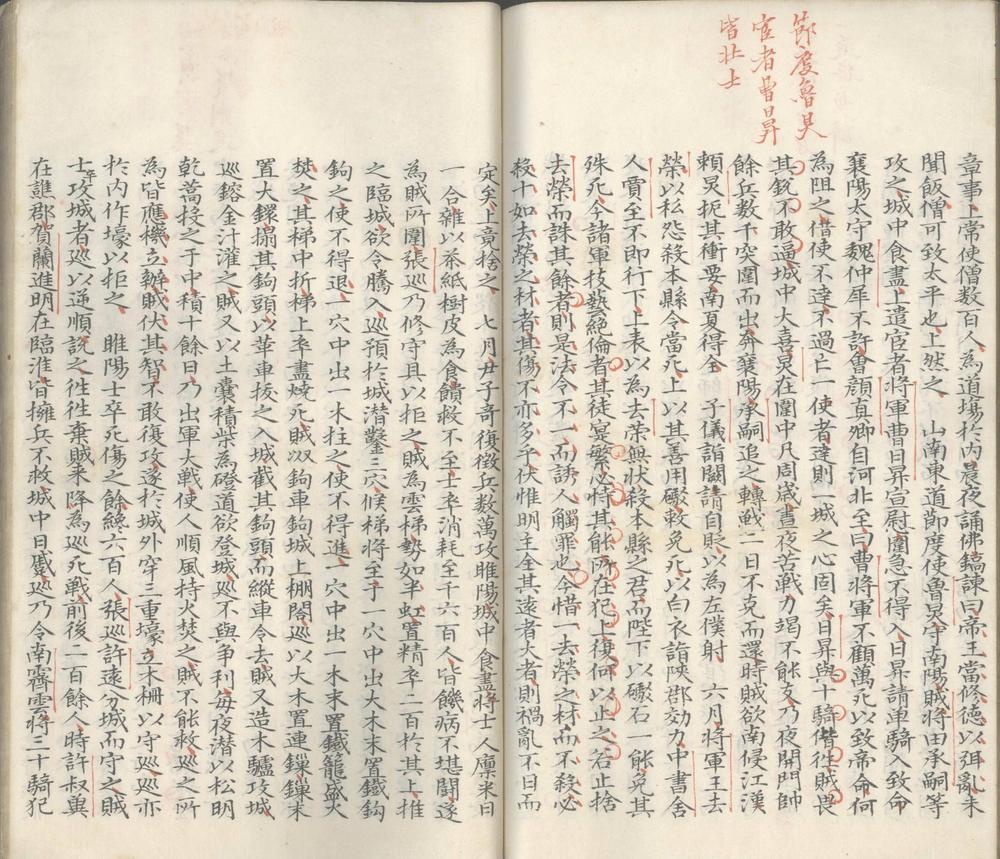 節度魯炅
宦者曹日昇
皆壯士
章事上常使僧數百人為道場於內晨夜誦佛鎬諫曰帝王當修德以弭亂未
聞飯僧可致太平也上然之 山南東道節度使魯炅守南陽賊將田承嗣等
攻之城中食盡上遣宦者將軍曹日昇宣慰圍急不得入日昇請單騎入致命
襄陽太守魏仲犀不許會顏真卿自河北至曰曹將軍不顧萬死以致帝命何
為阻之借使不達不過亡一使者達則一城之心固矣日昇與十騎偕往賊畏
其銳不敢逼城中大喜炅在圍中凡周歲晝夜苦戰力竭不能支乃夜開門帥
餘兵數千突圍而出奔襄陽承嗣追之轉戰二日不克而還時賊欲南侵江漢
賴炅扼其衝要南夏得全 子儀詣闕請自貶以為左僕射 六月將軍王去
榮以私怨殺本縣令當死上以其善用礮敕免死以白衣詣陝郡効力中書舍
人賈至不即行下上表以為去榮無狀殺本縣之君而陛下以礮石一能免其
殊死今諸軍技藝絕倫者其徒寔繁必恃其能所在犯上復何以止之若止捨
去榮而誅其餘者則是法令不一而誘人觸罪也今惜一去榮之材而不殺必
殺十如去榮之材者其傷不亦多乎伏惟明主全其遠者大者則禍亂不日而
定矣上竟捨之 七月尹子奇復徵兵數萬攻睢陽城中食盡將士人廩米日
一合雜以茶紙樹皮為食饋救不至士卒消耗至千六百人皆饑病不堪鬪遂
為賊所圍張巡乃修守具以拒之賊為雲梯勢如半虹置精卒二百於其上推
之臨城欲令騰入巡預於城潛鑿三穴候梯將至于一穴中出大木末置鐵鈎
鈎之使不得退一穴中出一木拄之使不得進一穴中出一木末置鐵籠盛火
焚之其梯中折梯上卒盡燒死賊以鈎車鈎城上棚閣巡以大木置連鏁鏁末
置大鐶搨其鈎頭以革車拔之入城截其鈎頭而縱車令去賊又造木驢攻城
巡鎔金汁灌之賊又以土囊積柴為磴道欲登城巡不與爭利每夜潛以松明
乾蒿投之于中積十餘日乃出軍大戰使人順風持火焚之賊不能救巡之所
為皆應機立辦賊伏其智不敢復攻遂於城外穿三重壕立木柵以守巡巡亦
於內作壕以拒之 睢陽士卒死傷之餘纔六百人張巡許遠分城而守之賊
士卒攻城者巡以逆順說之往往棄賊來降為巡死戰前後二百餘人時許叔兾
在譙郡賀蘭進明在臨淮皆擁兵不救城中日蹙巡乃令南霽雲將三十騎犯